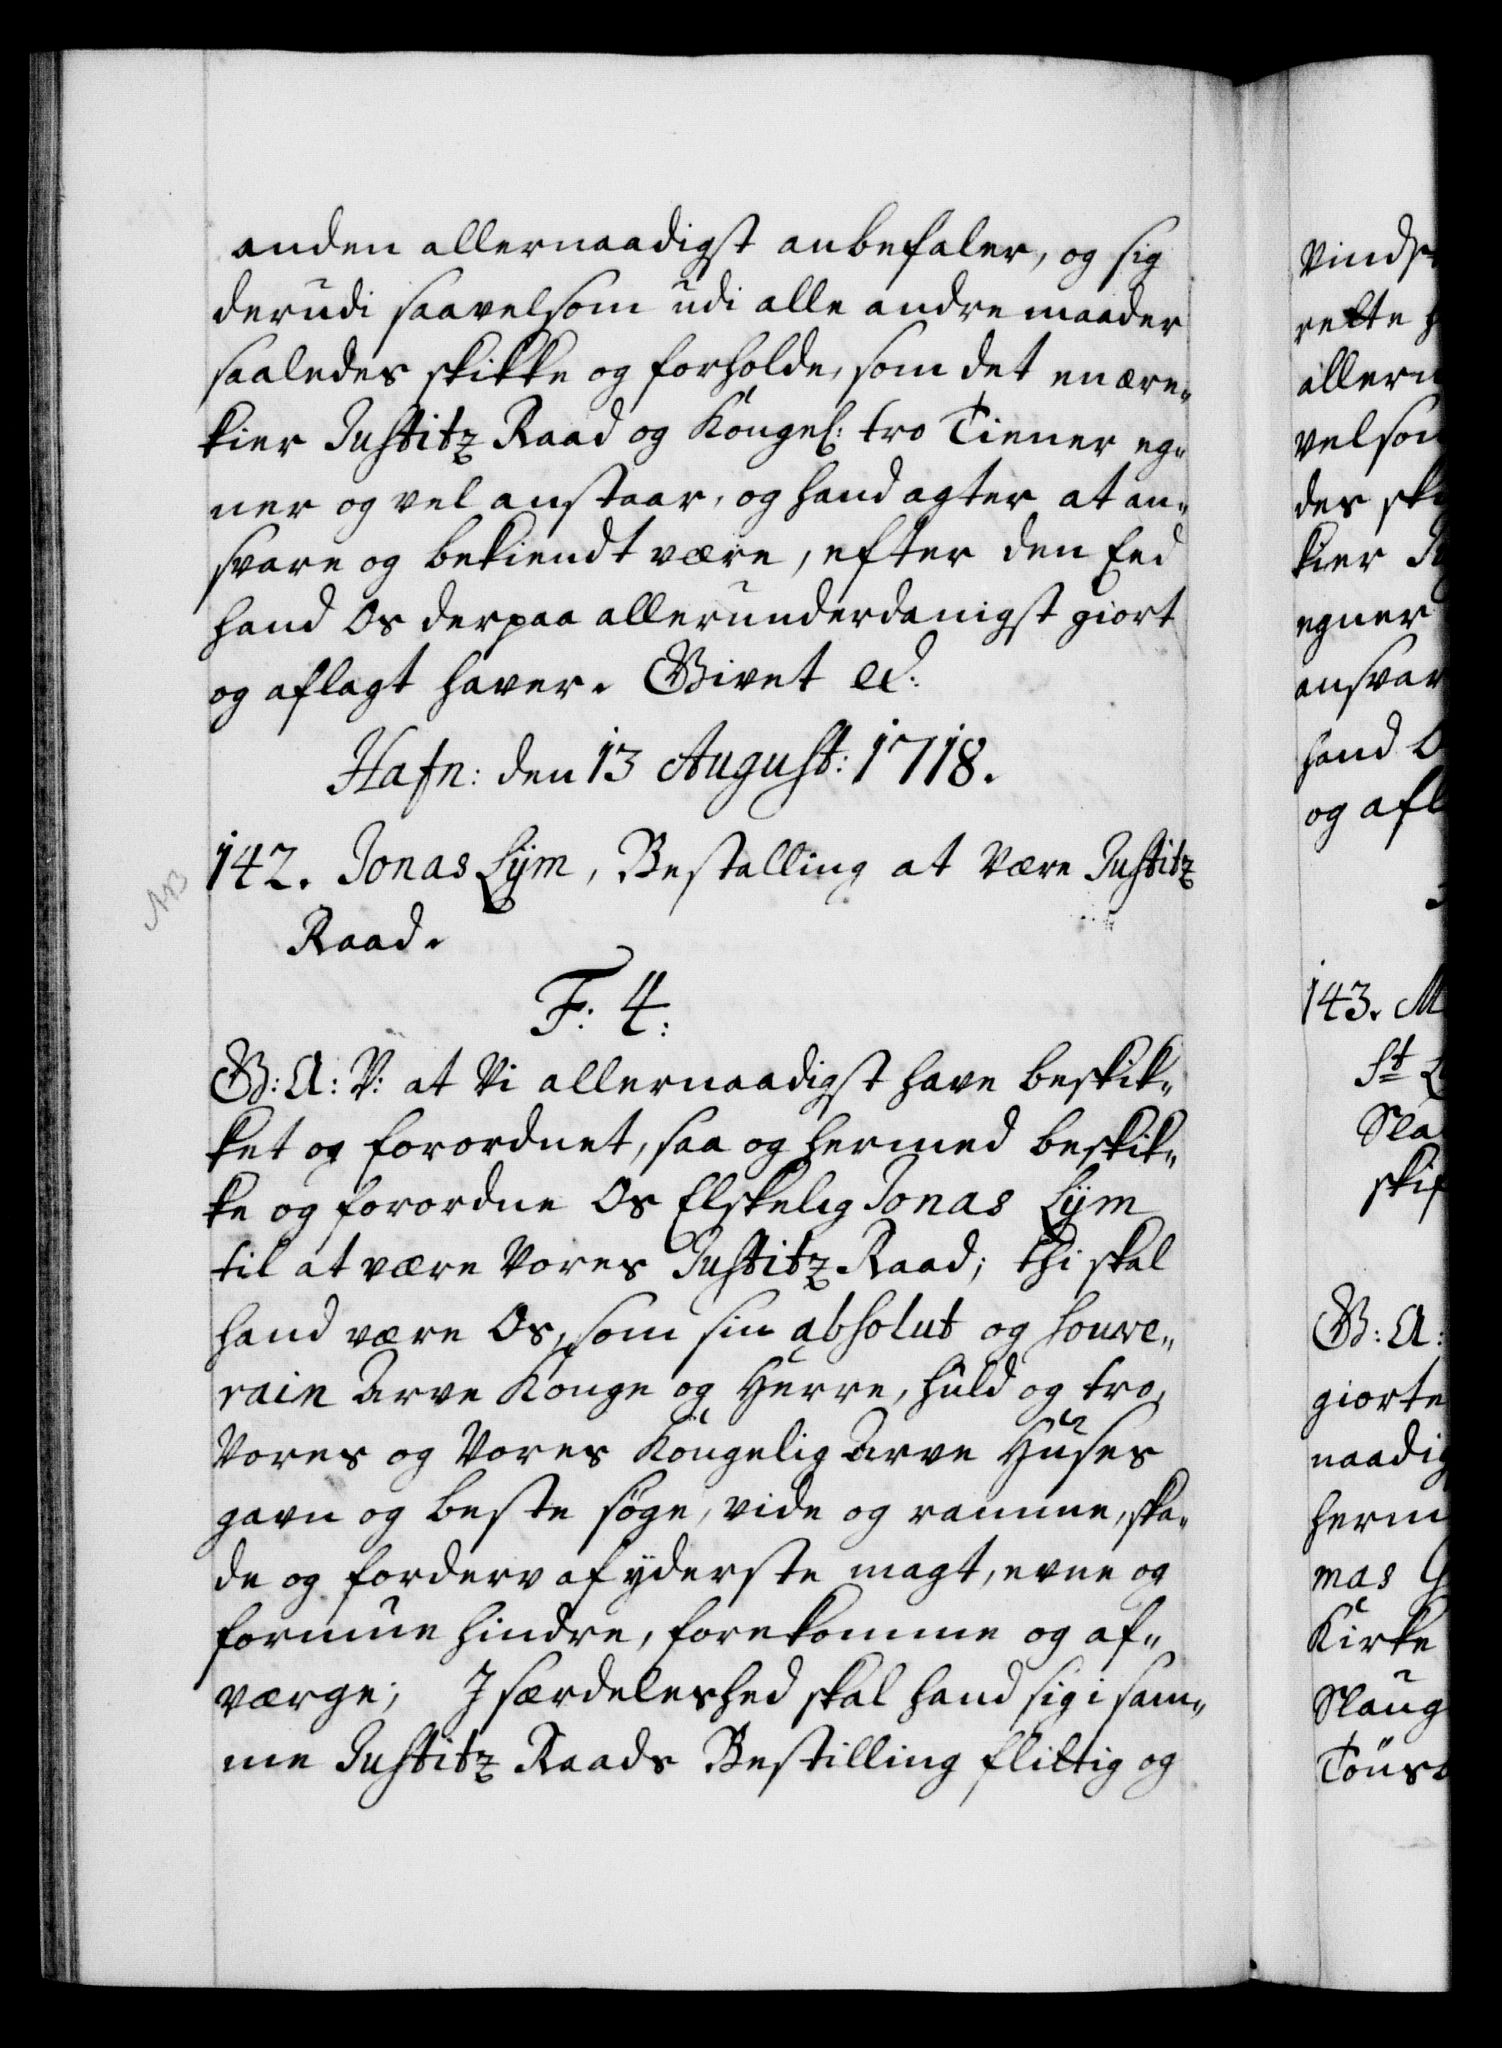 anden allernaadigst anbefaler, og sig
derudi saavelsom udi alle andre maader
saaledes skikke og forholde, som det en ære„
kier Justitz Raad og Kongel: tro Tiener eg„
ner og vel anstaar, og hand agter at an„
svare og bekiendt være, efter den Eed
hand Os derpaa allerunderdanigst giort
og aflagt haver. Givet etc:
Hafn: den 13 August: 1718.
142. Jonas Lÿm, Bestalling at være Justitz
Raad.
NB
F: 4:
G: A: V: at Vi allernaadigst have beskik„
ket og forordnet, saa og hermed beskik„
ke og forordne Os Elskelig Jonas Lÿm
til at være Vores Justitz Raad; thi skal
hand være Os, som sin absolut og souve„
rain Arve Konge og Herre, huld og tro,
Vores og Vores Kongelig Arve Huses
gavn og beste søge, vide og ramme, ska„
de og forderv af ÿderste magt, evne og
formue hindre, forekomme og af„
værge; I særdeleshed skal hand sig i sam„
me Justitz Raads Bestilling flittig og
Vinds
rette h
allern
velsom
des sk
kier Ju
egner
ansvar
hand O
og afl
143. M
St L
Sla
skif
G: A:
giorte
naadig
herm
mas
Kirke
Slaug
Tøns